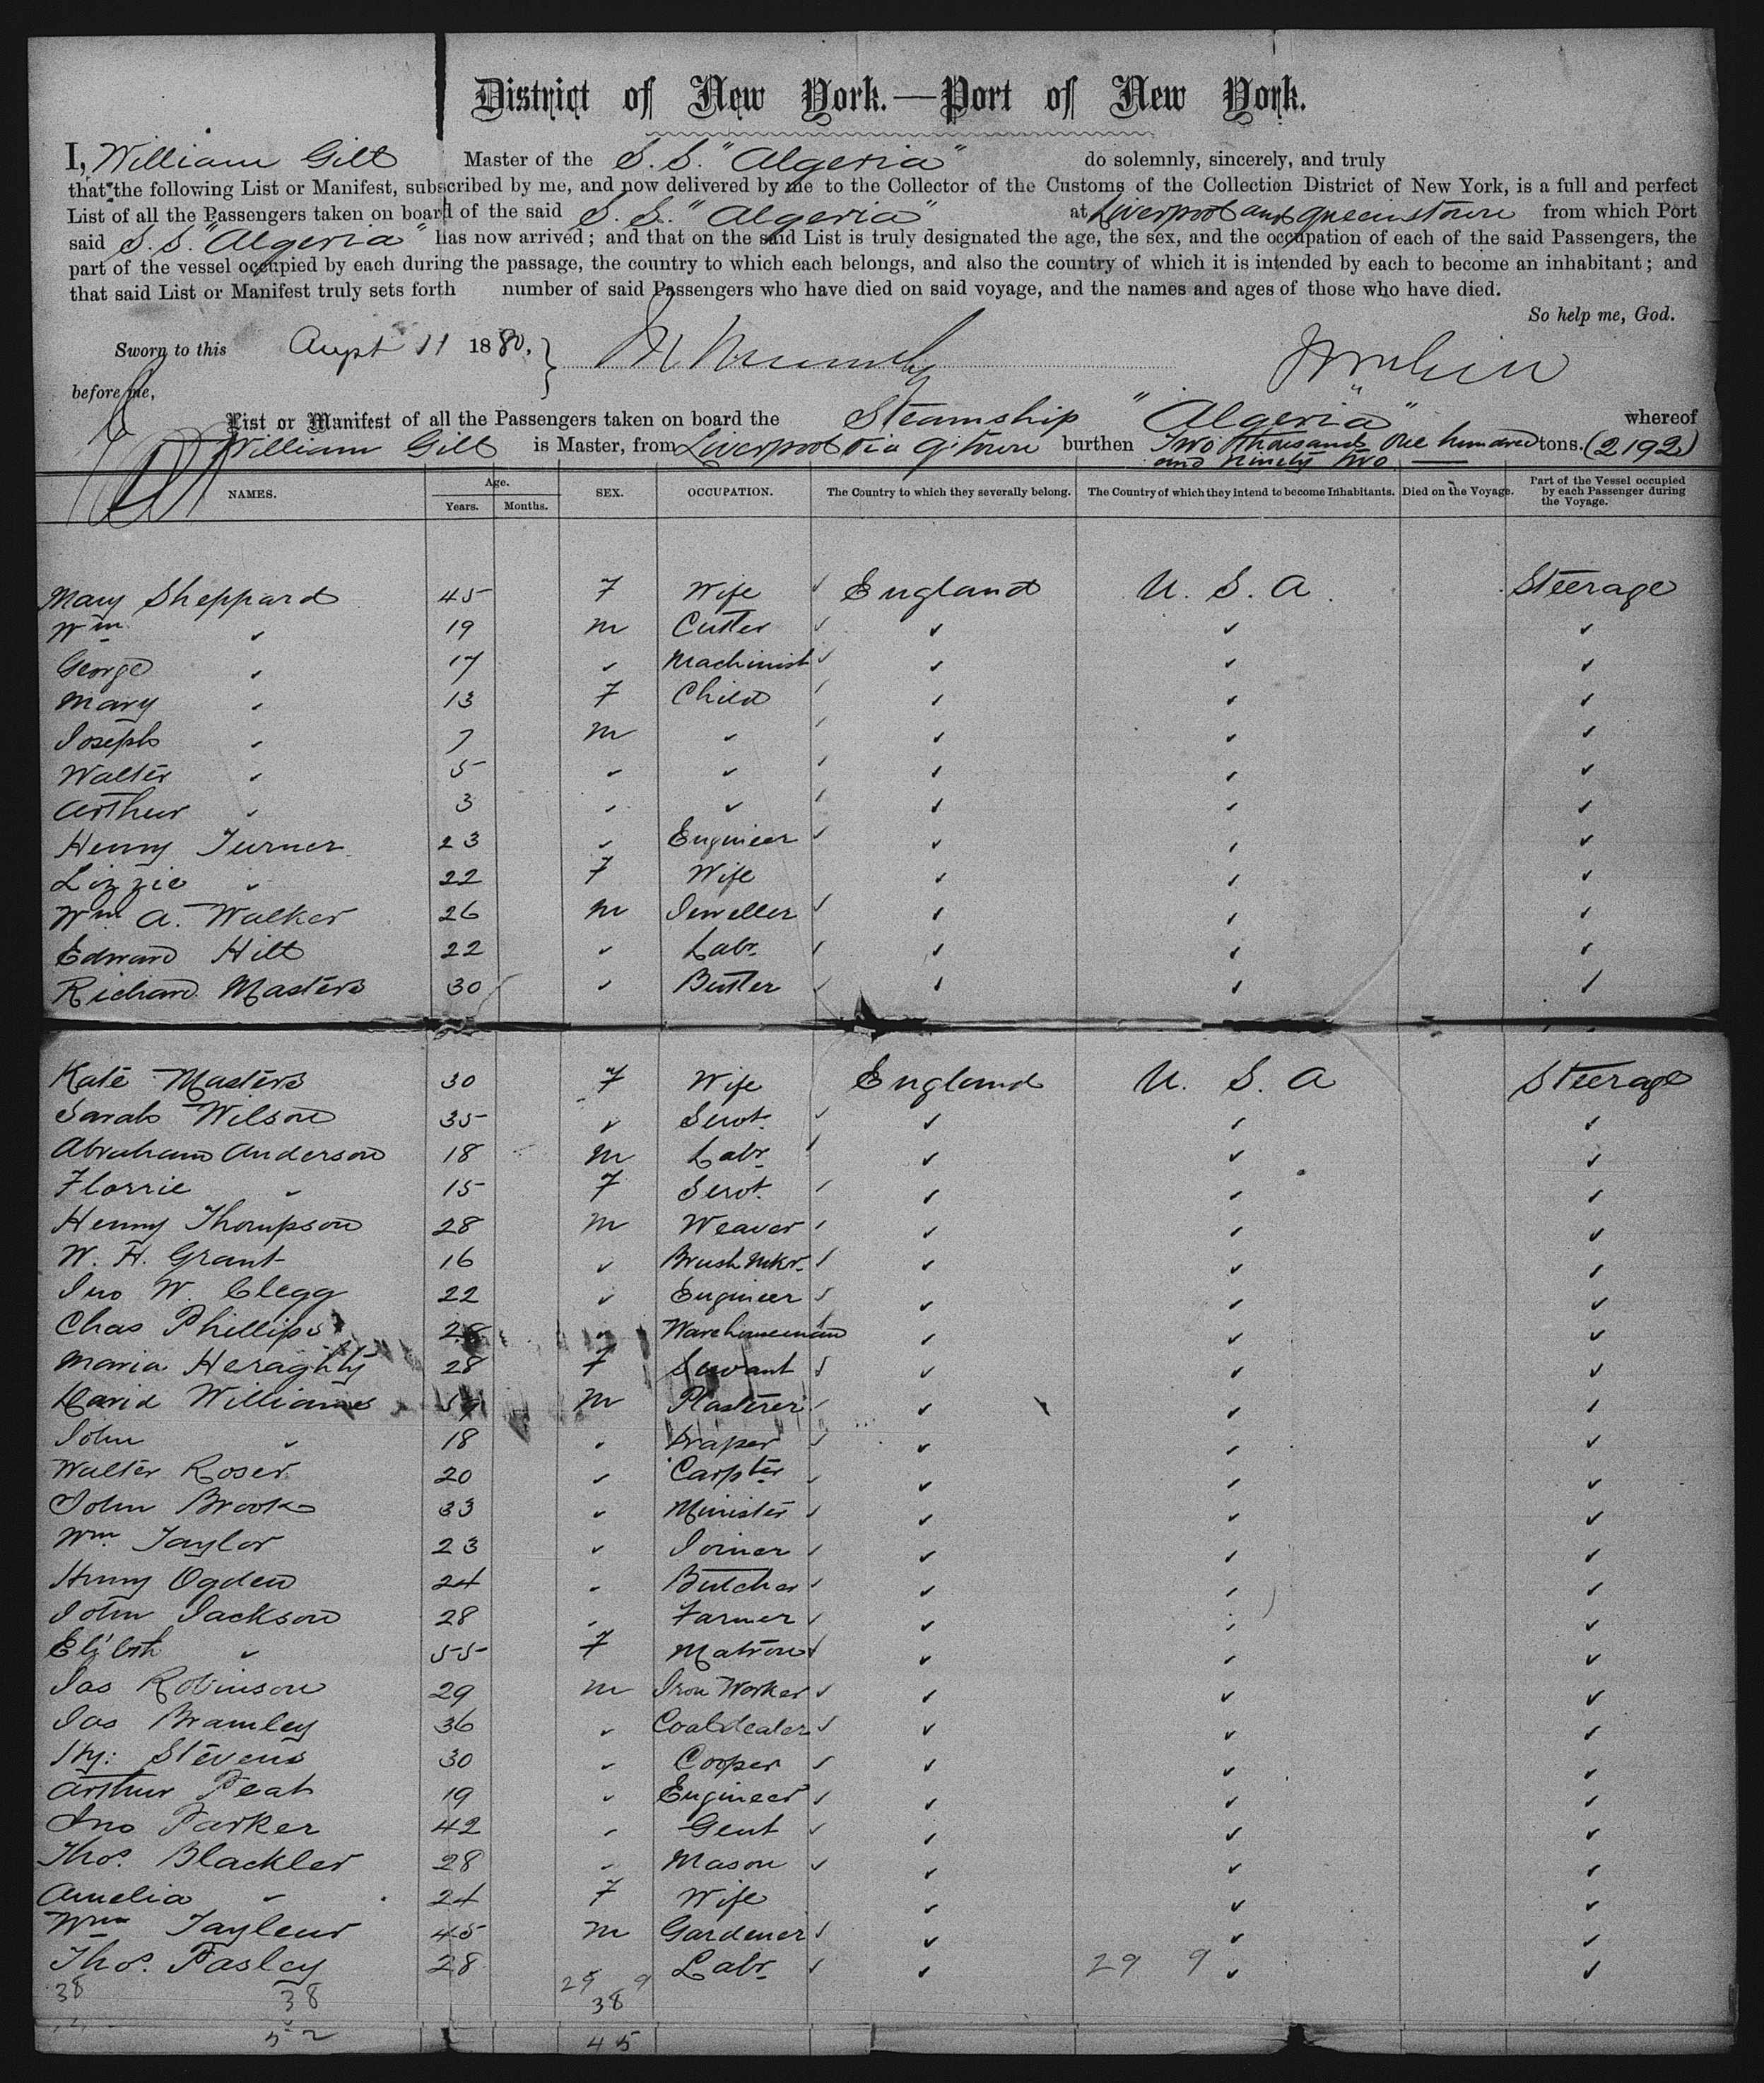 District of New York.—Port of New York.
I, William Gill Master of the S. S. "Algeria" do solemnly, sincerely, and truly
that the following List or Manifest, subscribed by me, and now delivered by me to the Collector of the Customs of the Collection District of New York, is a full and perfect
List of all the Passengers taken on board of the said S. S. "Algeria" at Liverpool and Queenstown from which Port
said S. S. "Algeria" has now arrived; and that on the said List is truly designated the age, the sex, and the occupation of each of the said Passengers, the
part of the vessel occupied by each during the passage, the country to which each belongs, and also the country of which it is intended by each to become an inhabitant; and
that said List or Manifest truly sets forth number of said Passengers who have died on said voyage, and the names and ages of those who have died.
So help me, God.
Sworn to this Augst 11 1880,
before me,
List or Manifest of all the Passengers taken on board the Steamship "Algeria" whereof
William Gill is Master, from Liverpool via Q'town burthen Two thousand one hundred tons. (2192)
and ninety two
NAMES. Age. SEX. OCCUPATION. The Country to which they severally belong. The Country of which they intend to become Inhabitants. Died on the Voyage. Part of the Vessel occupied by each Passenger during the Voyage.
Years. Months.
Mary Sheppard 45 F Wife ✓ England U. S. A. Steerage
Wm ✓ 19 M Cutter ✓ ✓ ✓ ✓
George ✓ 17 ✓ Machinist ✓ ✓ ✓ ✓
Mary ✓ 13 F Child ✓ ✓ ✓ ✓
Joseph ✓ 7 M ✓ ✓ ✓ ✓ ✓
Walter ✓ 5 ✓ ✓ ✓ ✓ ✓ ✓
Arthur ✓ 3 ✓ ✓ ✓ ✓ ✓ ✓
Henry Turner 23 ✓ Engineer ✓ ✓ ✓ ✓
Lizzie ✓ 22 F Wife ✓ ✓ ✓
Wm. A. Walker 26 M Jeweller ✓ ✓ ✓ ✓
Edward Hill 22 ✓ Labr. ✓ ✓ ✓ ✓
Richard Masters 30 ✓ Butler ✓ ✓ ✓ ✓
Kate Masters 30 F Wife England U. S. A Steerage
Sarah Wilson 35 ✓ Servt. ✓ ✓ ✓ ✓
Abraham Anderson 18 M Labr ✓ ✓ ✓ ✓
Florrie ✓ 15 F Servt. ✓ ✓ ✓ ✓
Henry Thompson 28 M Weaver ✓ ✓ ✓ ✓
W. H. Grant 16 ✓ Brush Mkr. ✓ ✓ ✓ ✓
Jno W. Clegg 22 ✓ Engineer ✓ ✓ ✓ ✓
Chas Phillips 28 ✓ Warehouseman ✓ ✓ ✓
Maria Heraghty 28 F Servant ✓ ✓ ✓ ✓
David Williams M Plasterer ✓ ✓ ✓ ✓
John ✓ 18 ✓ Draper ✓ ✓ ✓ ✓
Walter Roser 20 ✓ Carpter ✓ ✓ ✓ ✓
John Brook 33 ✓ Minister ✓ ✓ ✓ ✓
Wm. Taylor 23 ✓ Joiner ✓ ✓ ✓ ✓
Henry Ogden 24 ✓ Butcher ✓ ✓ ✓ ✓
John Jackson 28 ✓ Farmer ✓ ✓ ✓ ✓
Eli'bth ✓ 55 F Matron ✓ ✓ ✓ ✓
Jas Robinson 29 M Iron Worker ✓ ✓ ✓ ✓
Jas Bramley 36 ✓ Coaldealer ✓ ✓ ✓ ✓
Hy: Stevens 30 ✓ Cooper ✓ ✓ ✓ ✓
Arthur Peat 19 ✓ Engineer ✓ ✓ ✓ ✓
Jno Parker 42 ✓ Gent ✓ ✓ ✓ ✓
Thos. Blackler 28 ✓ Mason ✓ ✓ ✓ ✓
Amelia ✓ 24 F Wife ✓ ✓ ✓
Wm Tayleur 45 M Gardener ✓ ✓ ✓ ✓
Thos. Pasley 28 Labr. ✓ ✓ 29 9 ✓ ✓
38 38 29 9
38
52 45